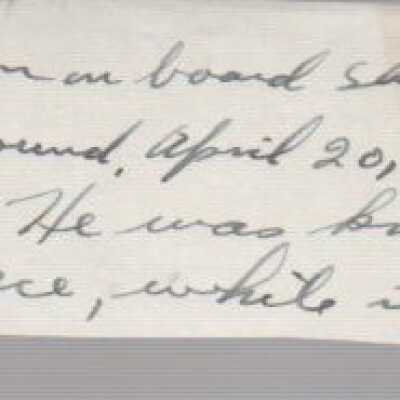 on board
ound, April 20,
He was
ece, while